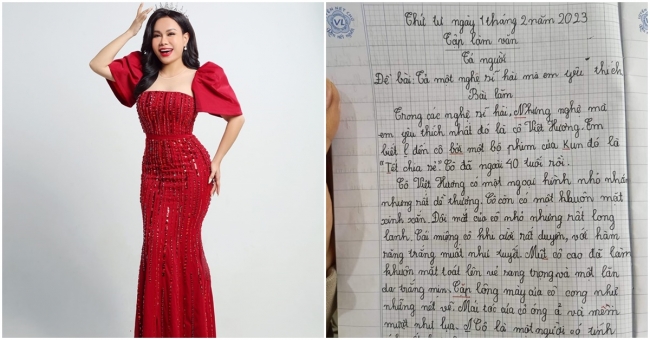 VL
Thứ tư ngày 1 tháng 2 năm 2023
Tập làm văn
Tả người
Đề bài: Tả một nghệ sĩ hài mà em yêu thích
Bài làm
Trong các nghệ sĩ hài. Nhưng nghệ mà
em yêu thích nhất đó là cô Việt Hương. Em
biết đến cô bởi một bộ phim của Kun đó là
"Tết chia sẻ". Cô đã ngoài 40 tuổi rồi.
Cô Việt Hương có một ngoại hình nhỏ nhắn
nhưng rất dễ thương. Cô còn có một khuôn mặt
xinh xắn. Đôi mắt của cô nhỏ nhưng rất long
lanh. Cái miệng cô khi cười rất duyên, với hàm
răng trắng muốt như tuyết. Mũi cô cao đã làm
khuôn mặt toát lên vẻ sang trọng và một làn
da trắng mịn. Cặp lông mày của cô cong như
những nét vẽ. Mái tóc của cô óng ả và mềm
mượt như lụa. Cô là một người có tính